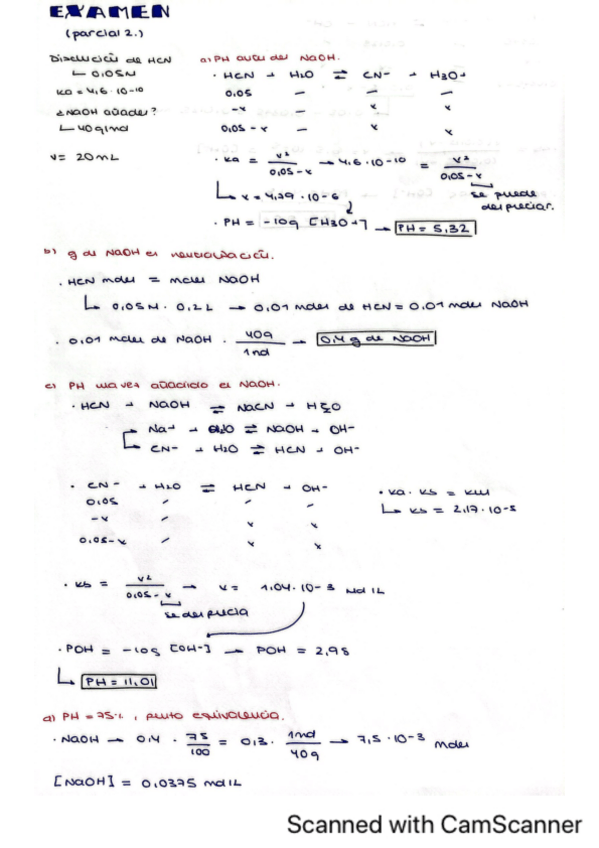 EXAMEN
(parcial 2.)
Disolución de HCN
↳ 0,05M
Ka = 4,6 · 10-10
¿NaOH añade?
↳ 40g/mol
V = 20mL
a) PH antes del NaOH.
· HCN + H2O ⇌ CN- + H3O+
0,05 – – –
-x x x
0,05-x x x
· Ka = x² / 0,05-x → 4,6·10-10 = x² / 0,05-x
↳ x = 4,79 · 10-6
se puede despreciar.
· PH = -log [H3O+] → PH = 5,32
b) g de NaOH en neutralización.
· HCN moles = moles NaOH
↳ 0,05M · 0,2L → 0,01 moles de HCN = 0,01 moles NaOH
· 0,01 moles de NaOH · 40g / 1mol → 0,4 g de NaOH
c) PH una vez añadido el NaOH.
· HCN + NaOH ⇌ NaCN + H2O
Na+ + H2O ⇌ NaOH + OH-
↳ CN- + H2O ⇌ HCN + OH-
· CN- + H2O ⇌ HCN + OH-
0,05 – – –
-x x x
0,05-x x x
· Ka · Kb = Kw
↳ Kb = 2,17 · 10-5
· Kb = x² / 0,05-x → x = 1,04 · 10-3 mol/L
se desprecia
· POH = -log [OH-] → POH = 2,98
↳ PH = 11,01
d) PH = 75%, punto equivalencia.
· NaOH → 0,4 · 75 / 100 = 0,3 · 1mol / 40g → 7,5 · 10-3 moles
[NaOH] = 0,0375 mol/L
Scanned with CamScanner